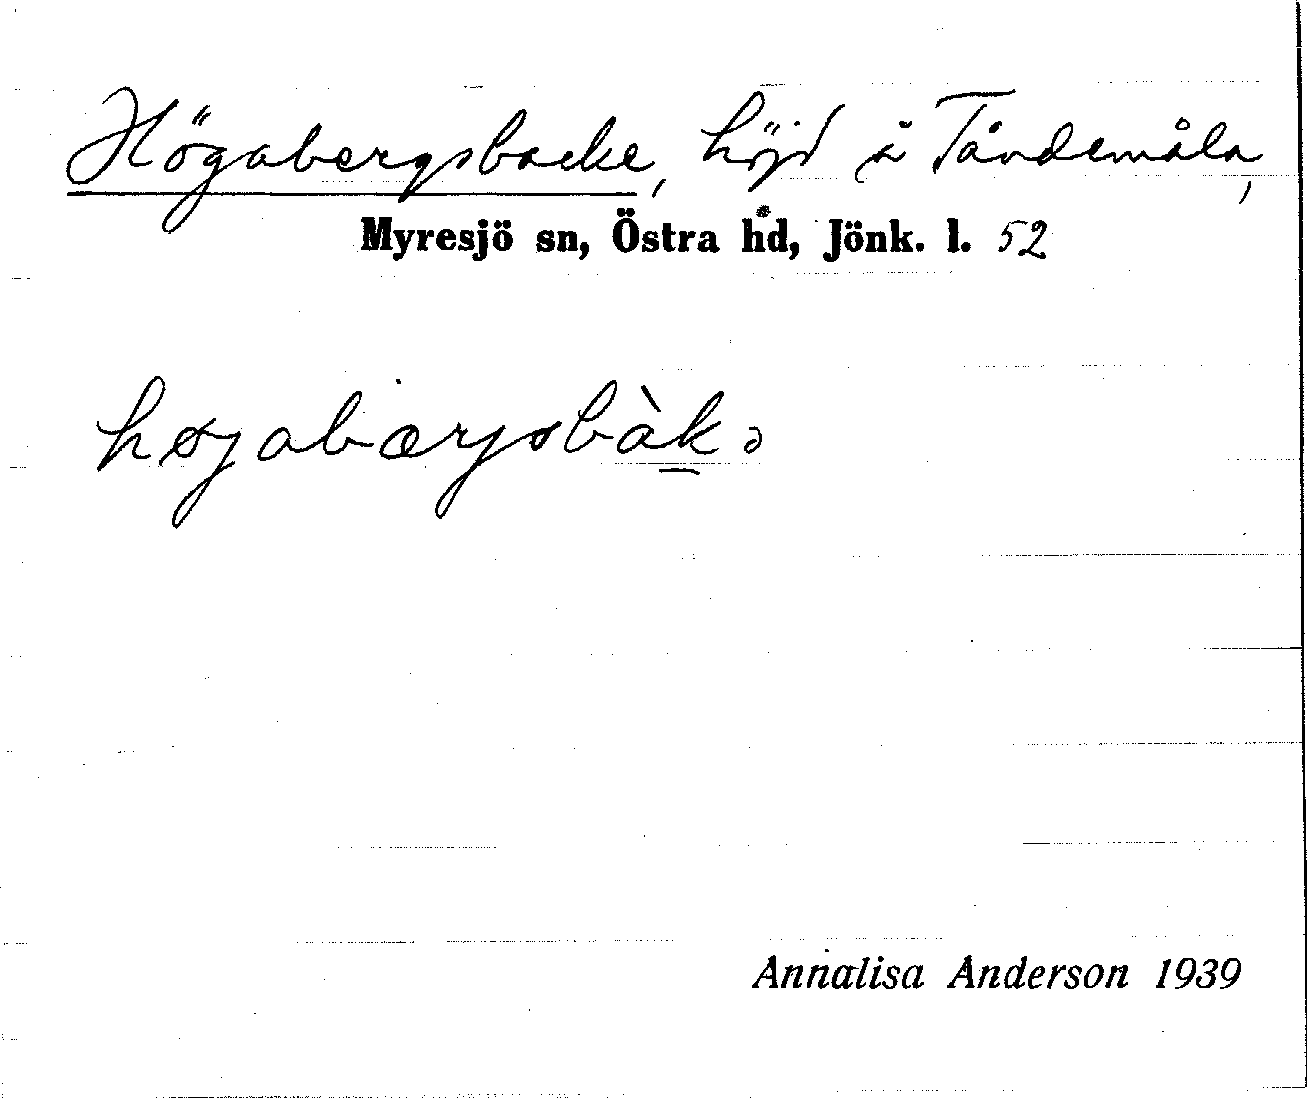 Högabergsbacke, höjd å Tåndemåla,
Myresjö sn, Östra hd, Jönk. l. 52
høgabærjsbàkə
Annalisa Anderson 1939